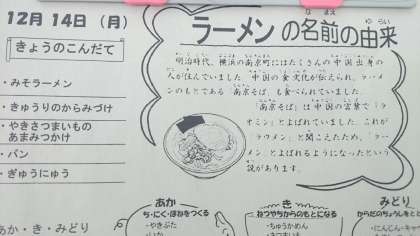 12月 14日 (月)
きょうのこんだて
・みそラーメン
・きゅうりのからみづけ
・やきさつまいもの
あまみつかけ
・パン
・ぎゅうにゅう
あか・き・みどり
ラーメンの名前の由来
なまえ ゆらい
明治時代、横浜の南京町にはたくさんの中国出身の
人が住んでいました。中国の食文化が伝えられ、ラーメ
ンのもとである「南京そば」も食べられていました。
「南京そば」は中国の言葉で「ラ
オミン」とよばれていました。これが
「ラウメン」と聞こえたため、「ラー
メン」とよばれるようになったという
説があります。
あか
ち・にく・ほねをつくる
・やきぶた
き
ねつやちからのもとになる
・ちゅうかめん
みどり
からだのちょうしをと
・にんじん・キャ